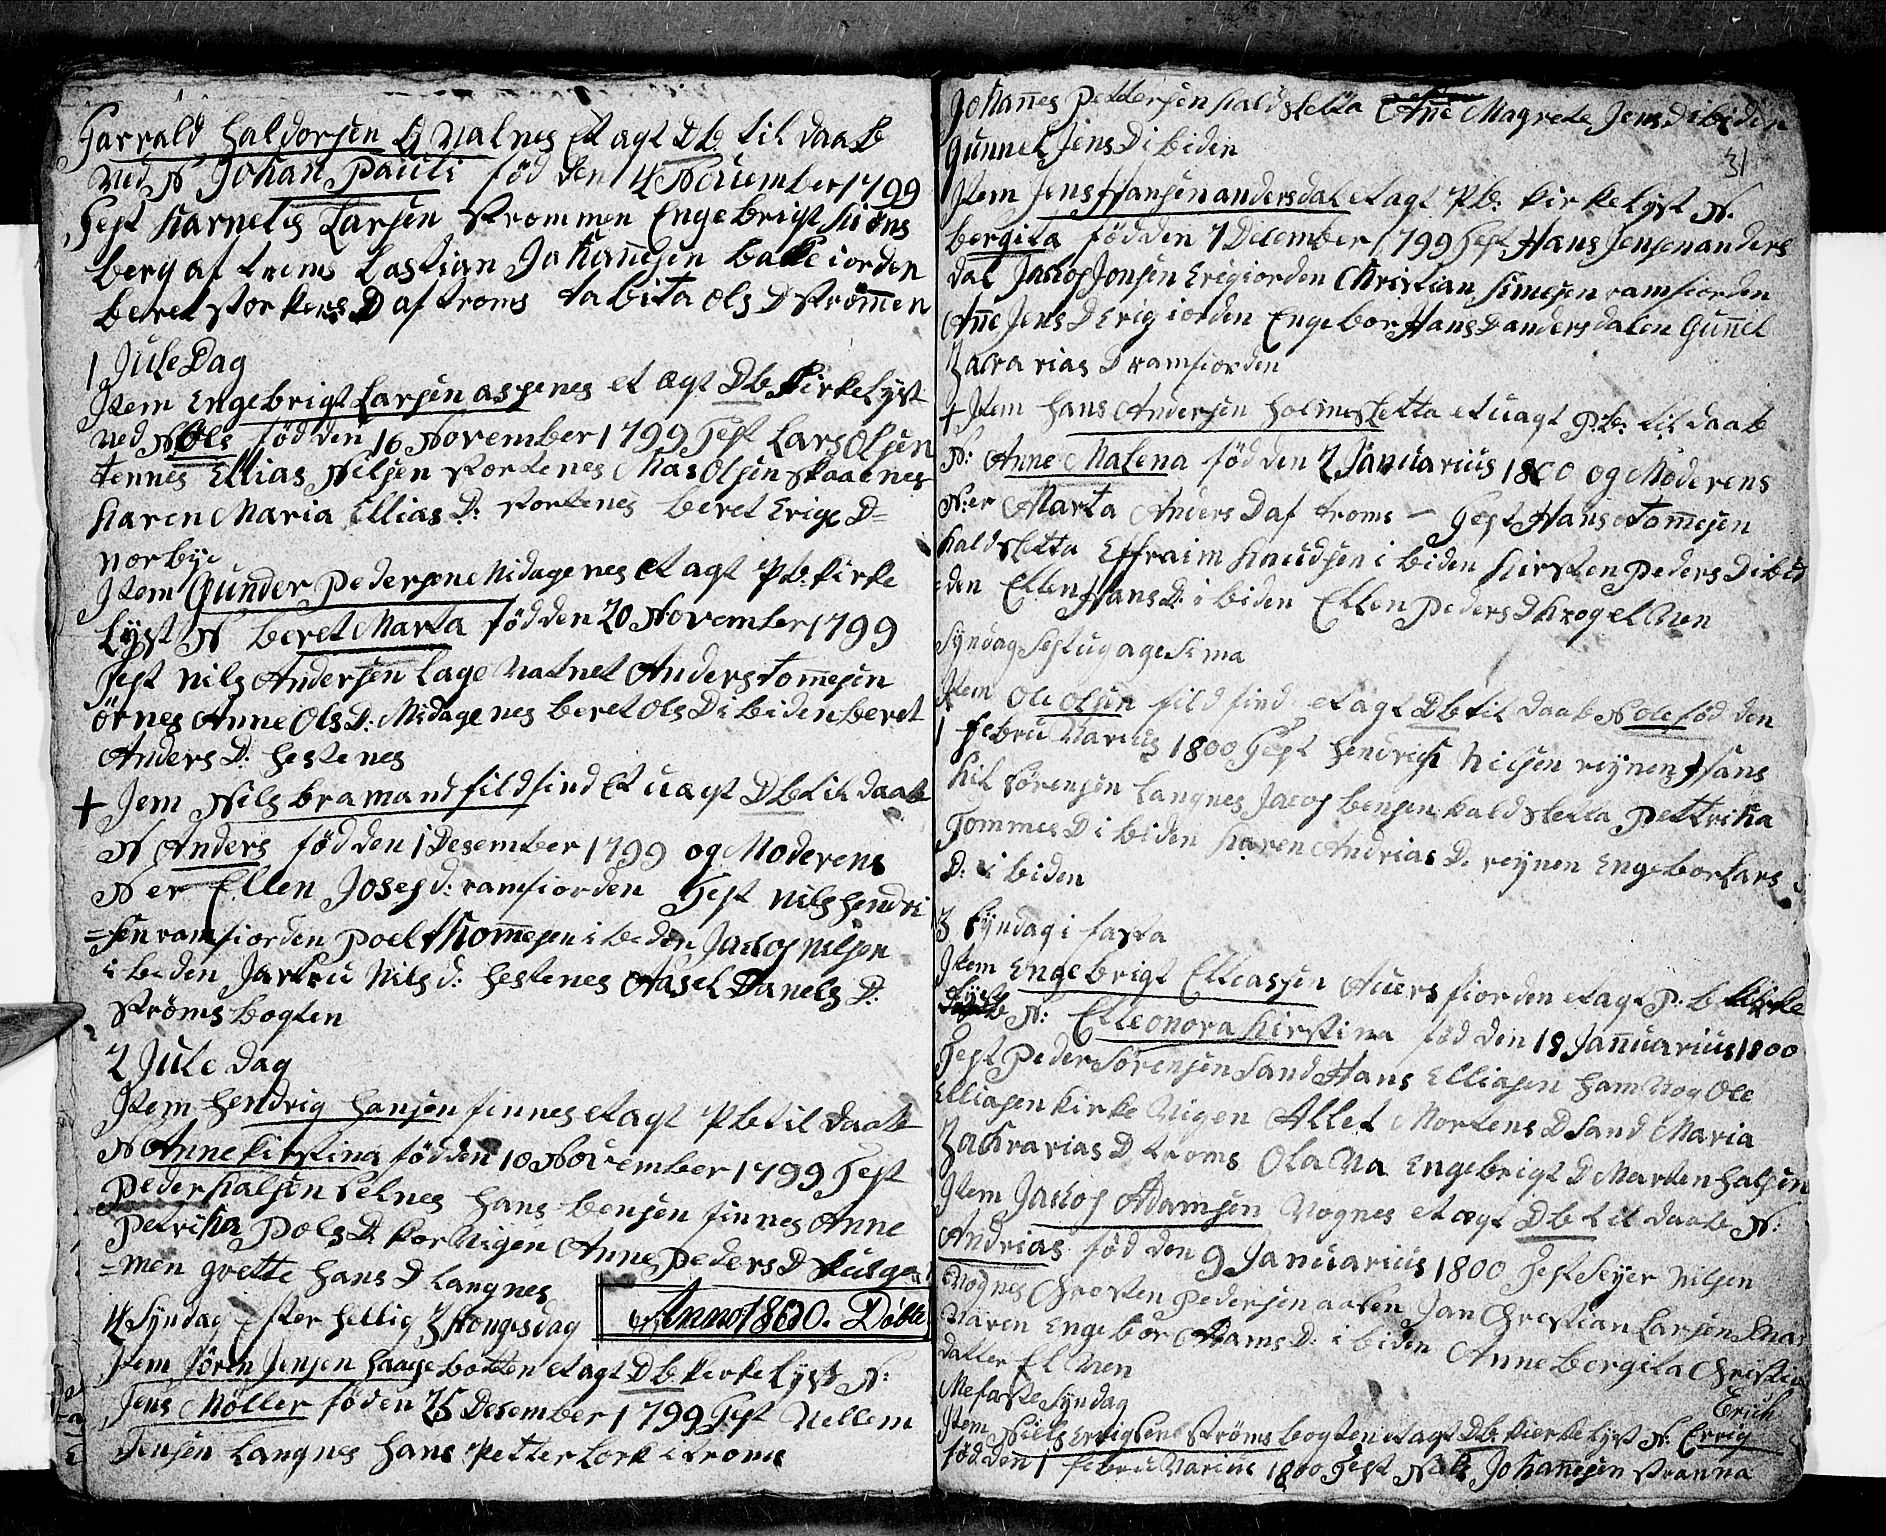 Harrald Haldorsen Qvalnes Et ægt Db. til daab
ved N Johan Pauli fød den 4 November 1799
Test Karnelis Larsen Strømmen Engebrigt Kiøns
berg af troms bastian Johañesen balsfiorden
beret storkers D af troms tabita Ols D Strømmen
1 Jule Dag
Item Engebrigt Larsen aspenes et ægt Db Kirkelyst
ved N Ols fød den 16 November 1799 Test Lars Olsen
tennes Ellias Nilsen Stortenes Mas Olsen skaatnes
Karen Maria Ellias D: stortenes beret Erigs D=
norbye
Item Gunder Pedersene Midagenes et ægt Pb. kirke
Lyst N beret Marta fød den 20 November 1799
Test Nils Andersen Lage vatnet Anders tommesen
örnes Anne Ols D: Midagenes beret Ols D i biden beret
Anders D: hestenes
+ Jem Nils bramand fildfind et uægt Db til daab
N Anders fød den 1 Desember 1799 og Moderens
N er Ellen Josef d: ramfiorden Test Nils hendri
=sen ramfiorden Poel thomesen i beden Jacop Nilsen
i beden Jartru Nils d: hestenes Aasel Danels D:
Strømsbogten
2 Jule dag
Item hendrig hansen finnes et ægt Pb til daab
N Anne Kirstina fød den 10 November 1799 Test
Peder Halsen Selnes hans bensen finnes Anne
Petrika Pols D: Korvigen Anne Peders D
=men grette hans D Langnes
4 Syndag Efter hellig 3 Kongesdag Anno 1800. Døbte
Item Søren Jensen haagebotten et ægt Db kerkelyst N:
Jens Møller fød en 25 Desember 1799 Test Vellem
Jensen Langnes hans Petter Lork i troms
31
Johañes Peddersen kaldsletta Añe Magrete Jens D i biden
Gunnel Jens D i biden
Item Jens Hansen andersdal et ægt Pb: kirkelyst N.
bergita fød den 7 December 1799 Test Hans Jensen anders
dal Jacop Jonsen Erigiorden Christian Simesen ramfiorden
Añe Jens D Erigiorden Engebor Hans D andersdalen Guñel
Zacrarias D ramfiorden
+ Item hans Andersen holmesletta et uægt Pb: til daab
N: Anne Malena fød den 2 Januarius 1800 og Moderens
N:er Marta Anders D af troms — Test Hans tomesen
kaldsletta Effraim Knudsen i biden Kirsten Peders D i bid
=den Ellen Hans D: i biden Ellen Peders D krogelven
Syndag Septugagesima
Item Ole Olsen fildfind et ægt Db til daab N ole fød den
1 februvarius 1800 Test hendrich Nilsen reynen Hans
hil Sørensen Langnes Jacop bensen kaldsletta Pettrika
Tommes D i biden Karen Andrias D. reynen Engebor Lars
D: i biden
3 Syndag i fasta
Item Engebrigt Elleassen Auersfiorden et ægt P. b kirke
lyst N: Elleonora Kirstina fød den 18 Jannuarius 1800
Test Peder Sørensen Sand Hans Elliasen hamvog Ole
Elliasen Kirkevigen Allet Mortens D Sand Maria
Zachrarias D troms Olava Engebrigt D Marten halsen
Item Jacop Adamsen Vognes et ægt Db til daab N:
Andrias fød den 9 Januarius 1800 Test Seyer Nilsen
Vognes Chresten Pedersen aasen Jan Chrestian Larsen
Maren Engebor Adams D: i biden Anne bergita Christia
datter Elven
Mefaste Syndag
Erich
Item Niels Errigsene Strømsbogten et ægt Db kierkelyst N. Errig
fød den 1 februvarius 1800 Test Nils Johañesen Stranna